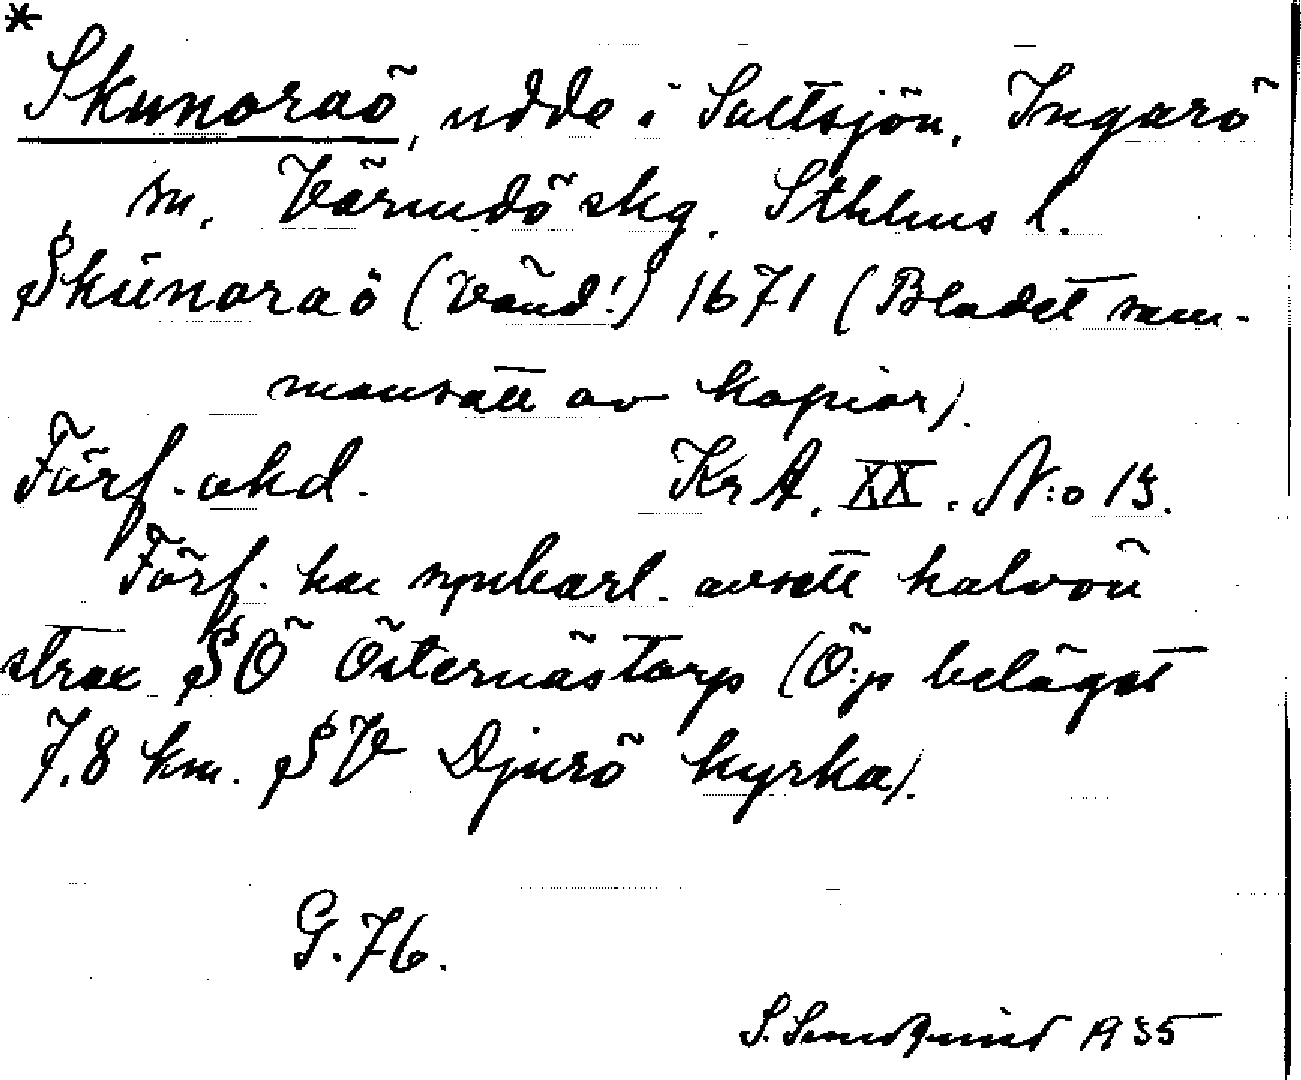 *
Skunoraö, udde i Saltsjön, Ingarö
sn, Värmdö skg. Sthlms l.
Skŭnoraö (Vänd!) 1671 (Bladet sam-
mansatt av kopior).
Förf. okd. Kr A. XX. N:o 13.
Förf. har synbarl. avsett halvön
strax SÖ Östernästorp (Ö:p beläget
7,8 km. SV Djurö kyrka).
G. 76.
S. Sundqvist 1935